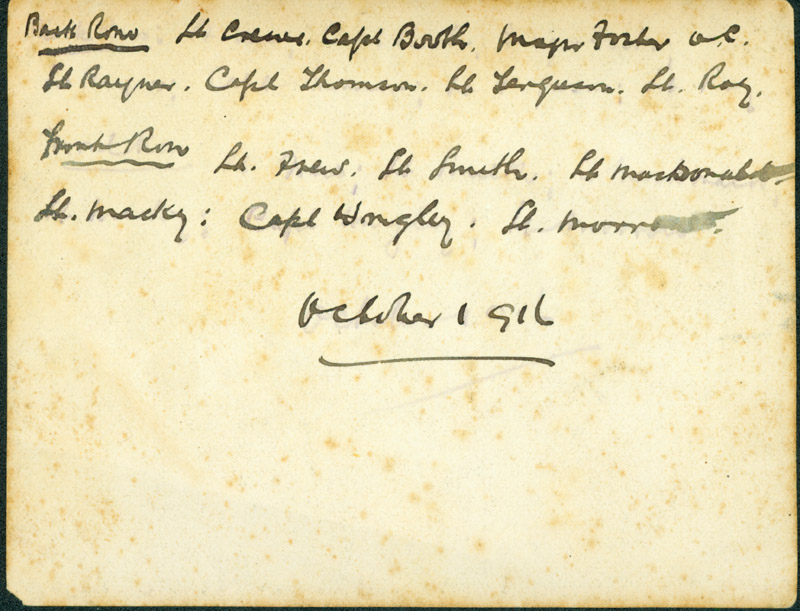 Back Row Lt Crewe. Capt Booth. Major Foster o.c.
Lt Rayner. Capt Thomson. Lt Ferguson. Lt. Roy.
Front Row Lt. Frew. Lt Smith. Lt MacDonald
Lt. Macky: Capt Wrigley. Lt.
October 1916